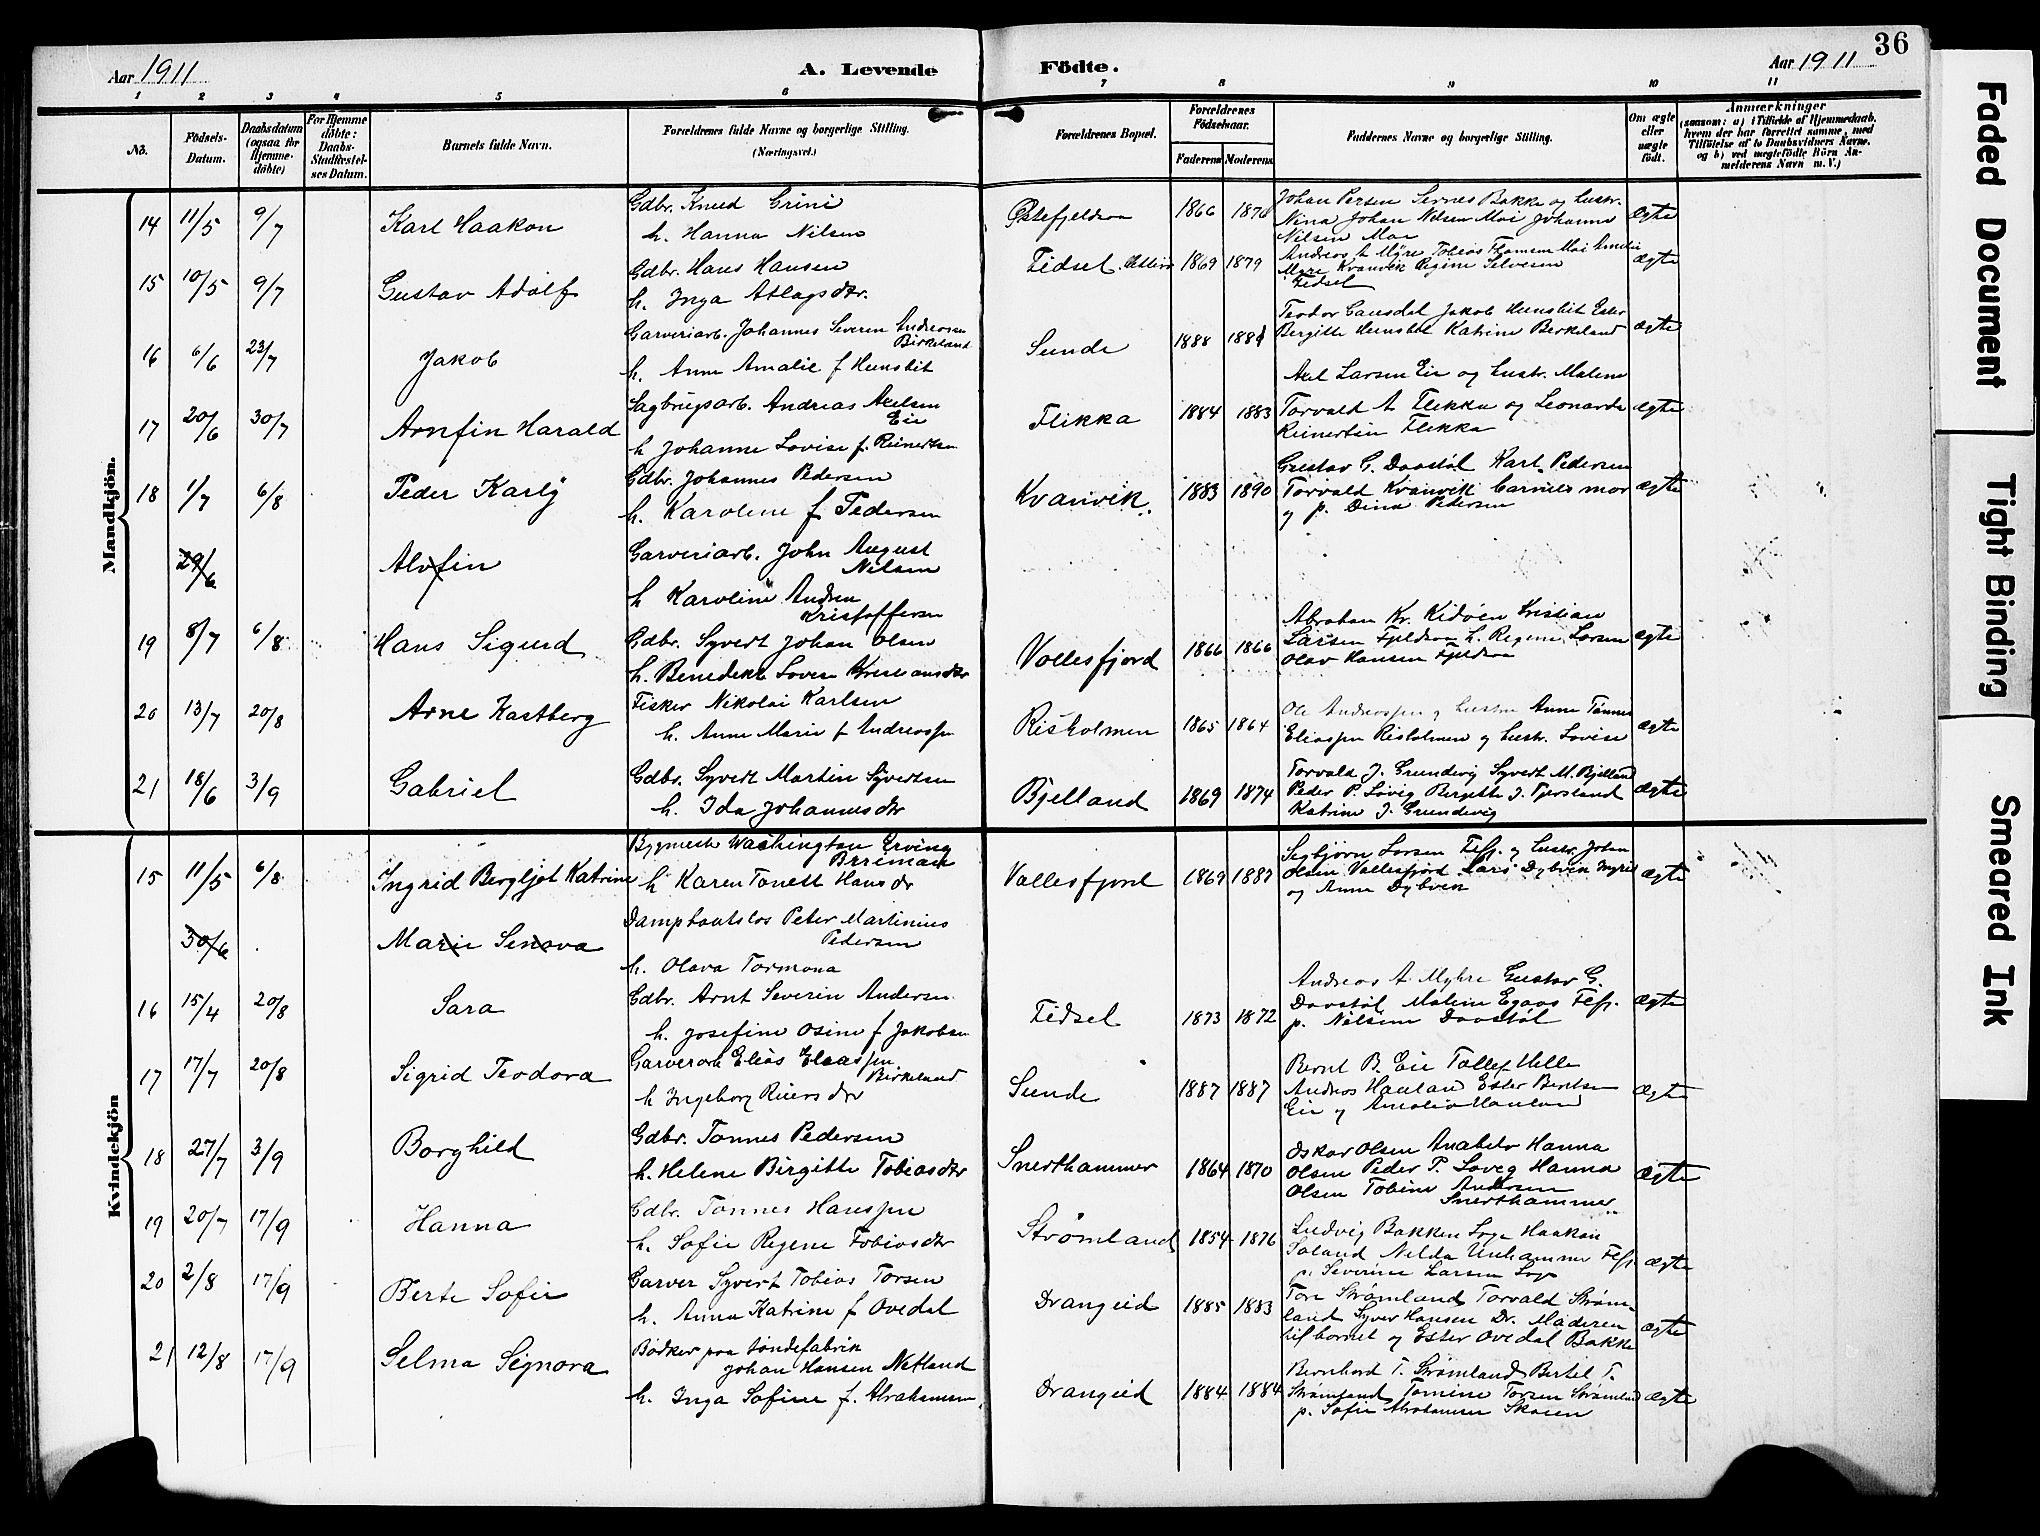 36
Aar 1911
A. Levende Födte.
Aar 1911
1 2 3 4 5 6 7 8 9 10 11
No.
Födsels-Datum.
Daabsdatum (ogsaa for Hjemme-döbte)
For Hjemme döbte: Daabs-Stadfæstelses Datum.
Barnets fulde Navn.
Forældrenes fulde Navne og borgerlige Stilling.
(Næringsvei.)
Forældrenes Bopæl.
Forældrenes Födselsaar.
Faderens Moderens
Faddernes Navne og borgerlige Stilling.
Om ægte eller uægte födt.
Anmærkninger
(saasom: a) i Tilfælde af Hjemmedaab, hvem der har forrettet samme, med Tilföielse af to Daabsvidners Navne, og b) ved uægtefödte Börn Anmelderens Navn m. V.)
Mandkjön.
14 11/5 9/7 Karl Haakon
Gdbr. Knud
h. Hanna Nilsen
1866
Johan Persen Bakke og hustr.
Nina Johan Nilsen Moi Johanne
Nilsen Moi
ægte
15 10/5 9/7 Gustav Adolf
Gdbr. Hans Hansen
h. Inga Atlagsdtr.
Fidsel 1869 1879
Andreas A Myre Tobias Moi
Kvanvik Regine
Fidsel
ægte
16 6/6 23/7 Jakob
Garveriarb. Johannes Severin Andreasen
Birkeland
h. Anne Amalie f Hunsbit
Sunde 1888
Teodor Gausdal Jakob Hunsbit Ester
Bergitte Katrine Birkeland
ægte
17 20/6 30/7 Arnfin Harald
Sagbrugsarb. Andreas Axelsen
Eie
h Johanne Lovise f. Reinertsen
Flikka 1884 1883
Axel Larsen Eie og hustr. Malene
Torvald A Flikka og Leonarda
Reinertsen Flikka
ægte
18 1/7 6/8 Peder Karly
Gdbr. Johannes Pedersen
h. Karoline f Pedersen
Kvanvik. 1883 1890
Gustav G. Daastöl Karl Pedersen
Torvald Kvanvik mor
og p. Dina Pedersen
ægte
29/6 Alvfin
Garveriarb. John August
Nilsen
h Karoline
Kristoffersen
19 8/7 6/8 Hans Sigurd
Gdbr. Syvert Johan Olsen
h. Benedekte
Vollesfjord 1866 1866
Abraham Kr. Kidöen Kristian
Larsen h. Regine Larsen
Olav Hansen
ægte
20 13/7 20/8 Arne Kastberg
Fisker Nikolai Karlsen
h. Anne Marie f Andreassen
Risholmen 1865 1864
Ole Andreassen og hustru Anne Tönnes
Eliassen Risholmen og hustr. Lovise
ægte
21 18/6 3/9 Gabriel
Gdbr. Syvert Martin Syvertsen
h. Ida Johannesdtr
Bjelland 1869 1874
Torvald J. Grundvig Syvert M. Bjelland
Peder P. Lövig Bergitte J. Fjersland
Katrine J. Grundvig
ægte
Kvindekjön
15 11/5 6/8 Ingrid Bergljot Katrine
Bygmester Washington Erving
h Karen Tonett Hansdr
Vollesfjord 1869 1887
Segbjörn Larsen og hustr. Johan
Olsen Vollesfjord Lars Dybvik Ingrid
og Anna Dybvik
ægte
30/6 Marie Senova
Dampbaatslos Peter Martinius
Pedersen
h. Olava Tormona
16 15/4 20/8 Sara
Gdbr. Arnt Severin Andersen
h. Josefine Osine f Jakobsen
Fidsel 1873 1872
Andreas A. Myhre Gustav G.
Daastöl Malene
p. Nilsine Daastöl
ægte
17 17/7 20/8 Sigrid Teodora
Garverarb Elias Eliassen
Birkeland
h Ingeborg
Sunde 1887 1887
Bernt B. Eie Tollef Helle
Andreas Haulan Ester Berntsen
Eie og Amalia Haulan
ægte
18 27/7 3/9 Borghild
Gdbr. Tonnes Pedersen
h. Helene Birgitte Tobiasdtr
Snerthammer 1864 1870
Oskar Olsen Anabelo Hanna
Olsen Peder P. Loveg Hanna
Olsen Tobine Andersen
Snerthammer
ægte
19 20/7 17/9 Hanna
Gdbr. Tonnes Hanssen
h. Sofie Regene Tobiasdtr
Strømland 1854 1876
Ludvig Bakken Haakon
Soland Nilda Unhammer
p. Severine Larsen
ægte
20 2/8 17/9 Berte Sofie
Garver Syvert Tobias Torsen
h. Anna Katrine f Ovedal
Drangeid 1885 1883
Tore Strømland Torvald Strøm-
land Syver Hansen Dr. Moderen
til barnet og Ester Ovedal Bakke
ægte
21 12/8 17/9 Selma Signora
Bödker paa töndefabrik
Johan Hansen Netland
h. Inga Sofine f. Abrahamsen
Drangeid 1884 1884
Bernhard T. Strømland Bertel T.
Strømland Tomine Torsen Strømland
p. Sofie Abrahamsen Skasen
ægte
Faded Document
Tight Binding
Smeared Ink